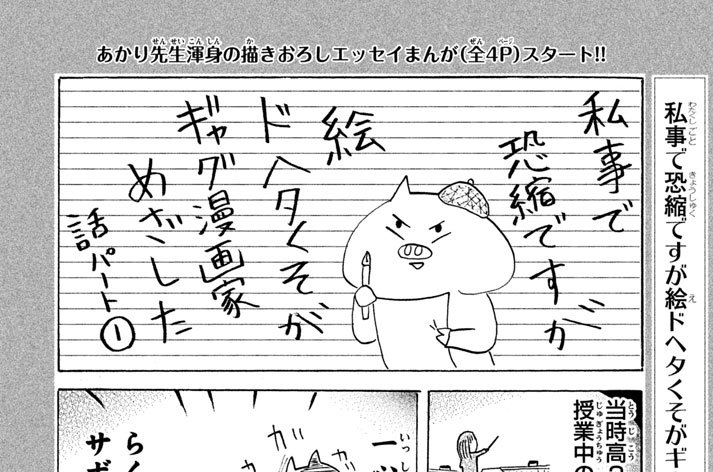 あかり先生渾身の描きおろしエッセイまんが(全4P)スタート!!
私事で恐縮ですが絵ドヘタくそがギ
私事で
恐縮ですが
絵
ドヘタくそが
ギャグ漫画家
めざした
話パート①
当時高
授業中の
一
らく
サボ